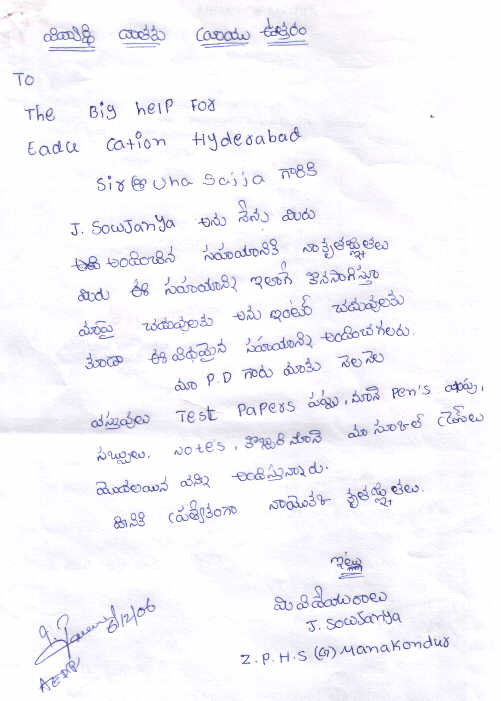 వాతకు వ్రాయు ఉత్తరం
To
The Big help For
Eadu cation Hyderabad
Sir @ Uha Sajja గారికి
J. Sowjanya అను నేను మీరు
అందించిన సహయానికి నా కృతజ్ఞతలు
మీరు ఈ సహయాన్ని ఇలాగే కొనసాగిస్తూ
మాపై చదువులకు అను ఇంటర్ చదువులకు
కూడా ఈ విధమైన సహయాన్ని అందించగలరు.
మా P.D గారు మాకు నెల నెల
వస్తువులు Test Papers పళ్ళు, నూనె Pen's
సబ్బులు. Notes, కొబ్బరి నూనె మా స్కూల్ డ్రెస్ లు
మొదలయిన వన్ని అందిస్తున్నారు.
దీనికి ప్రత్యేకంగా నాయొక్క కృతజ్ఞతలు.
ఇట్లు
మీ విధేయురాలు
J. Sowjanya
Z.P.H.S (G) Manakondur
8/12/06